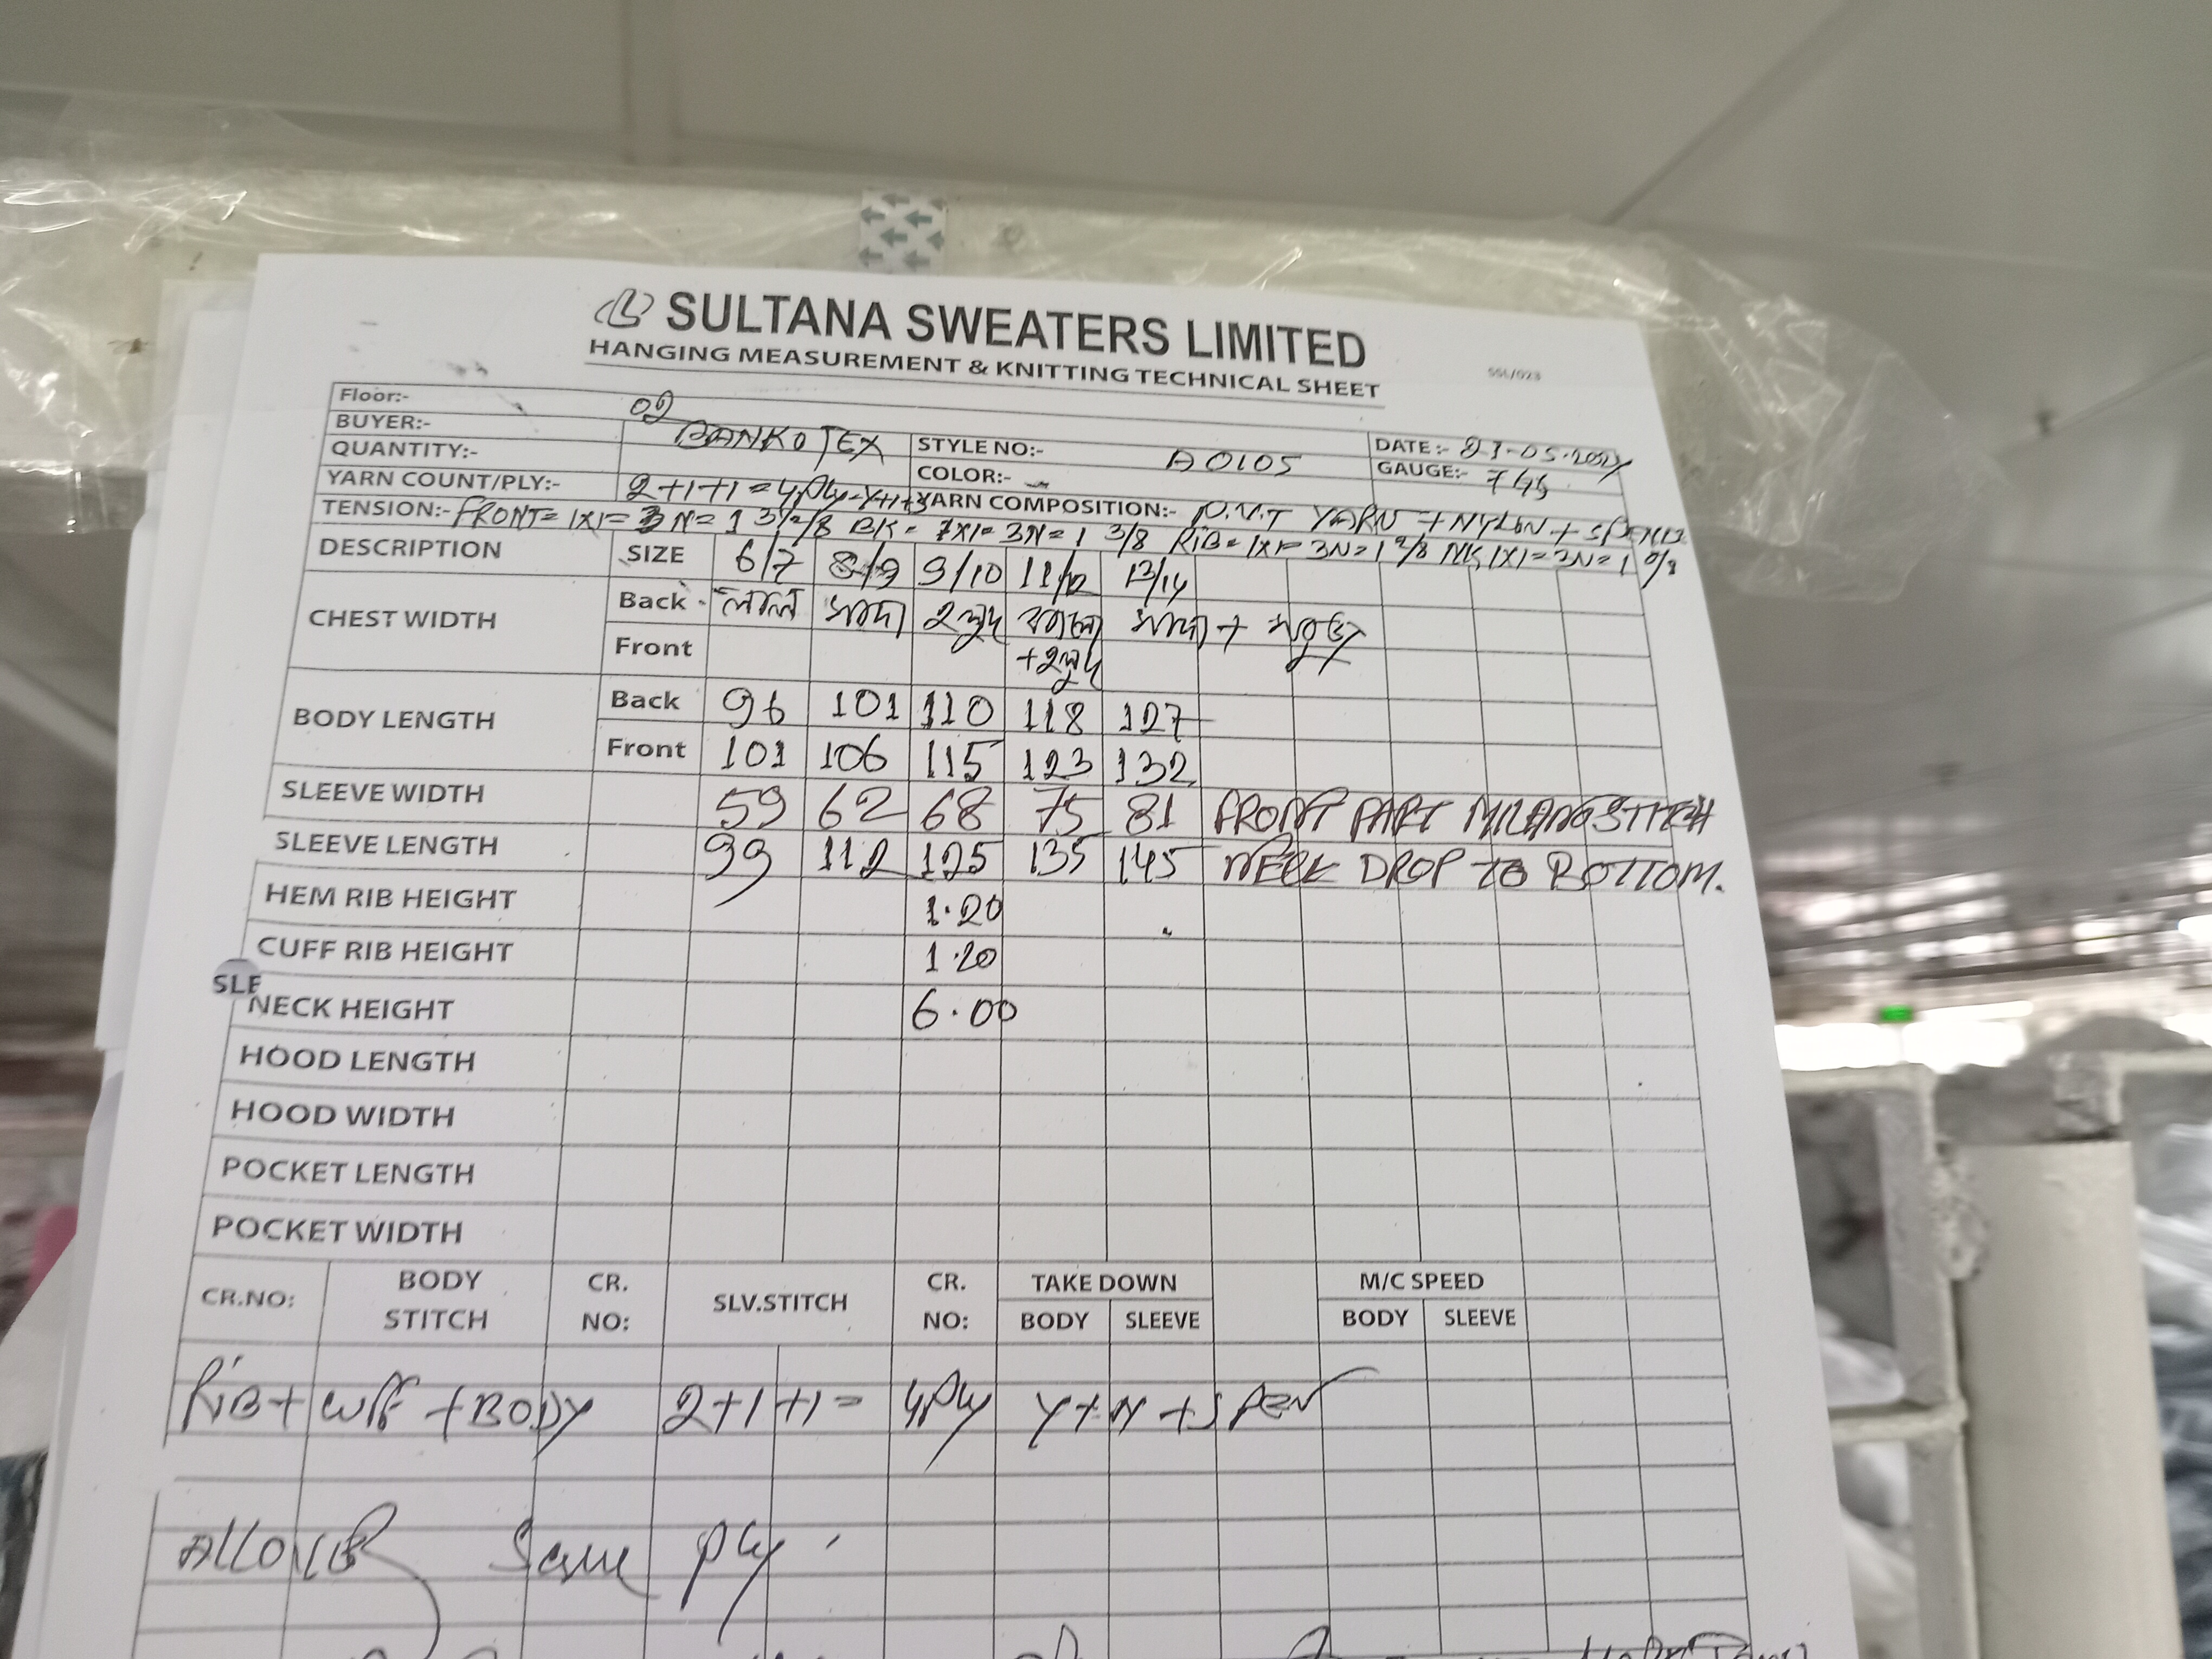 SULTANA SWEATERS LIMITED
HANGING MEASUREMENT & KNITTING TECHNICAL SHEET
SSL/023
Floor:- 02
BUYER:- BANKOTEX STYLE NO:- A0105 DATE:- 21-05-2024
QUANTITY:- COLOR:- GAUGE:- 7GG
YARN COUNT/PLY:- 2+1+1=4Ply YARN COMPOSITION:- P.V.T YARN + NYLON +
TENSION:- FRONT= 1X1= 3N= 1 3½/8 BK= 1X1= 3N= 1 3/8 RIB= 1X1= 3N= 1 2/8 NK 1X1= 3N= 1 0/8
DESCRIPTION SIZE 6/7 8/9 9/10 11/12 13/14
CHEST WIDTH
Back লাল সাদা হলুদ কালো সাদা + সবুজ
Front +হলুদ
BODY LENGTH
Back 96 101 110 118 127
Front 101 106 115 123 132
SLEEVE WIDTH 59 62 68 75 81 FRONT PART MILANO STITCH
SLEEVE LENGTH 99 112 125 135 145 NECK DROP TO BOTTOM.
HEM RIB HEIGHT 1.20
CUFF RIB HEIGHT 1.20
SLE
NECK HEIGHT 6.00
HOOD LENGTH
HOOD WIDTH
POCKET LENGTH
POCKET WIDTH
CR.NO: BODY STITCH CR. NO: SLV.STITCH CR. NO: TAKE DOWN M/C SPEED
BODY SLEEVE BODY SLEEVE
RiB+ Cuff + BODY 2+1+1= 4Ply Y+N+SPEN
Same Ply